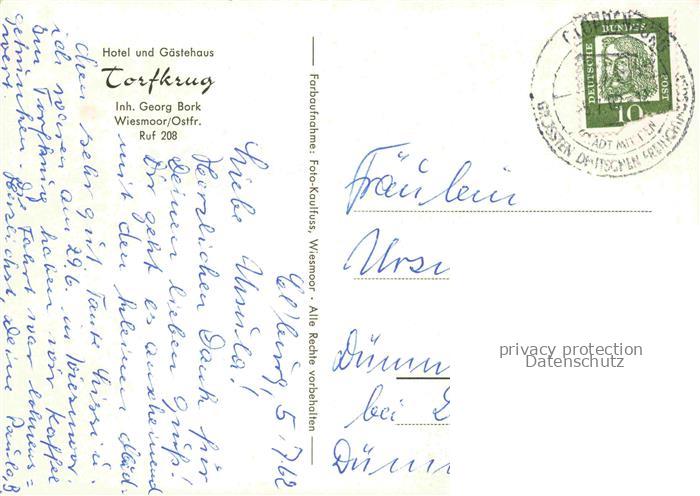 Hotel und Gästehaus
Torfkrug
Inh. Georg Bork
Wiesmoor/Ostfr.
Ruf 208
Farbaufnahme: Foto-Kaulfuss, Wiesmoor · Alle Rechte vorbehalten
5.7.62
Liebe Ursula!
Herzlichen Dank für
Deinen lieben Gruß!
Dir geht es anscheinend
mit den kleinen Mäd-
chen sehr gut. Tante Lissi u.
ich waren am 29.6. in Wiesmoor.
Im Torfkrug haben wir Kaffee
getrunken. Die Fahrt war lohnens=
wert. Herzlichst, Deine Paula
DEUTSCHE BUNDESPOST
10
STADT MIT DEN
GRÖSSTEN DEUTSCHEN
Fräulein
Ursu
Dümm
bei
Dümm
privacy protection
Datenschutz